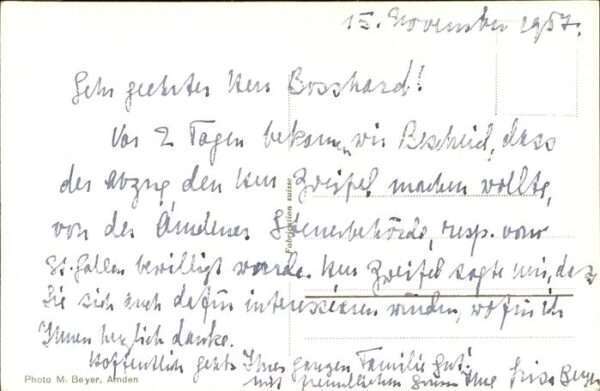 15. November 1957.
Sehr geehrter Herr Bosshard!
Vor 2 Tagen bekamen wir Bescheid, dass
der Abzug den Herr Zweifel machen wollte,
von der Amdener Steuerbehörde, resp. von
St. Gallen bewilligt wurde. Herr Zweifel sagte mir, dass
Sie sich auch dafür interessieren würden, wofür ich
Ihnen herzlich danke.
Hoffentlich geht's Ihrer ganzen Familie gut!
Mit freundlichem Gruss Ihre
Fabrication suisse
Photo M. Beyer, Amden